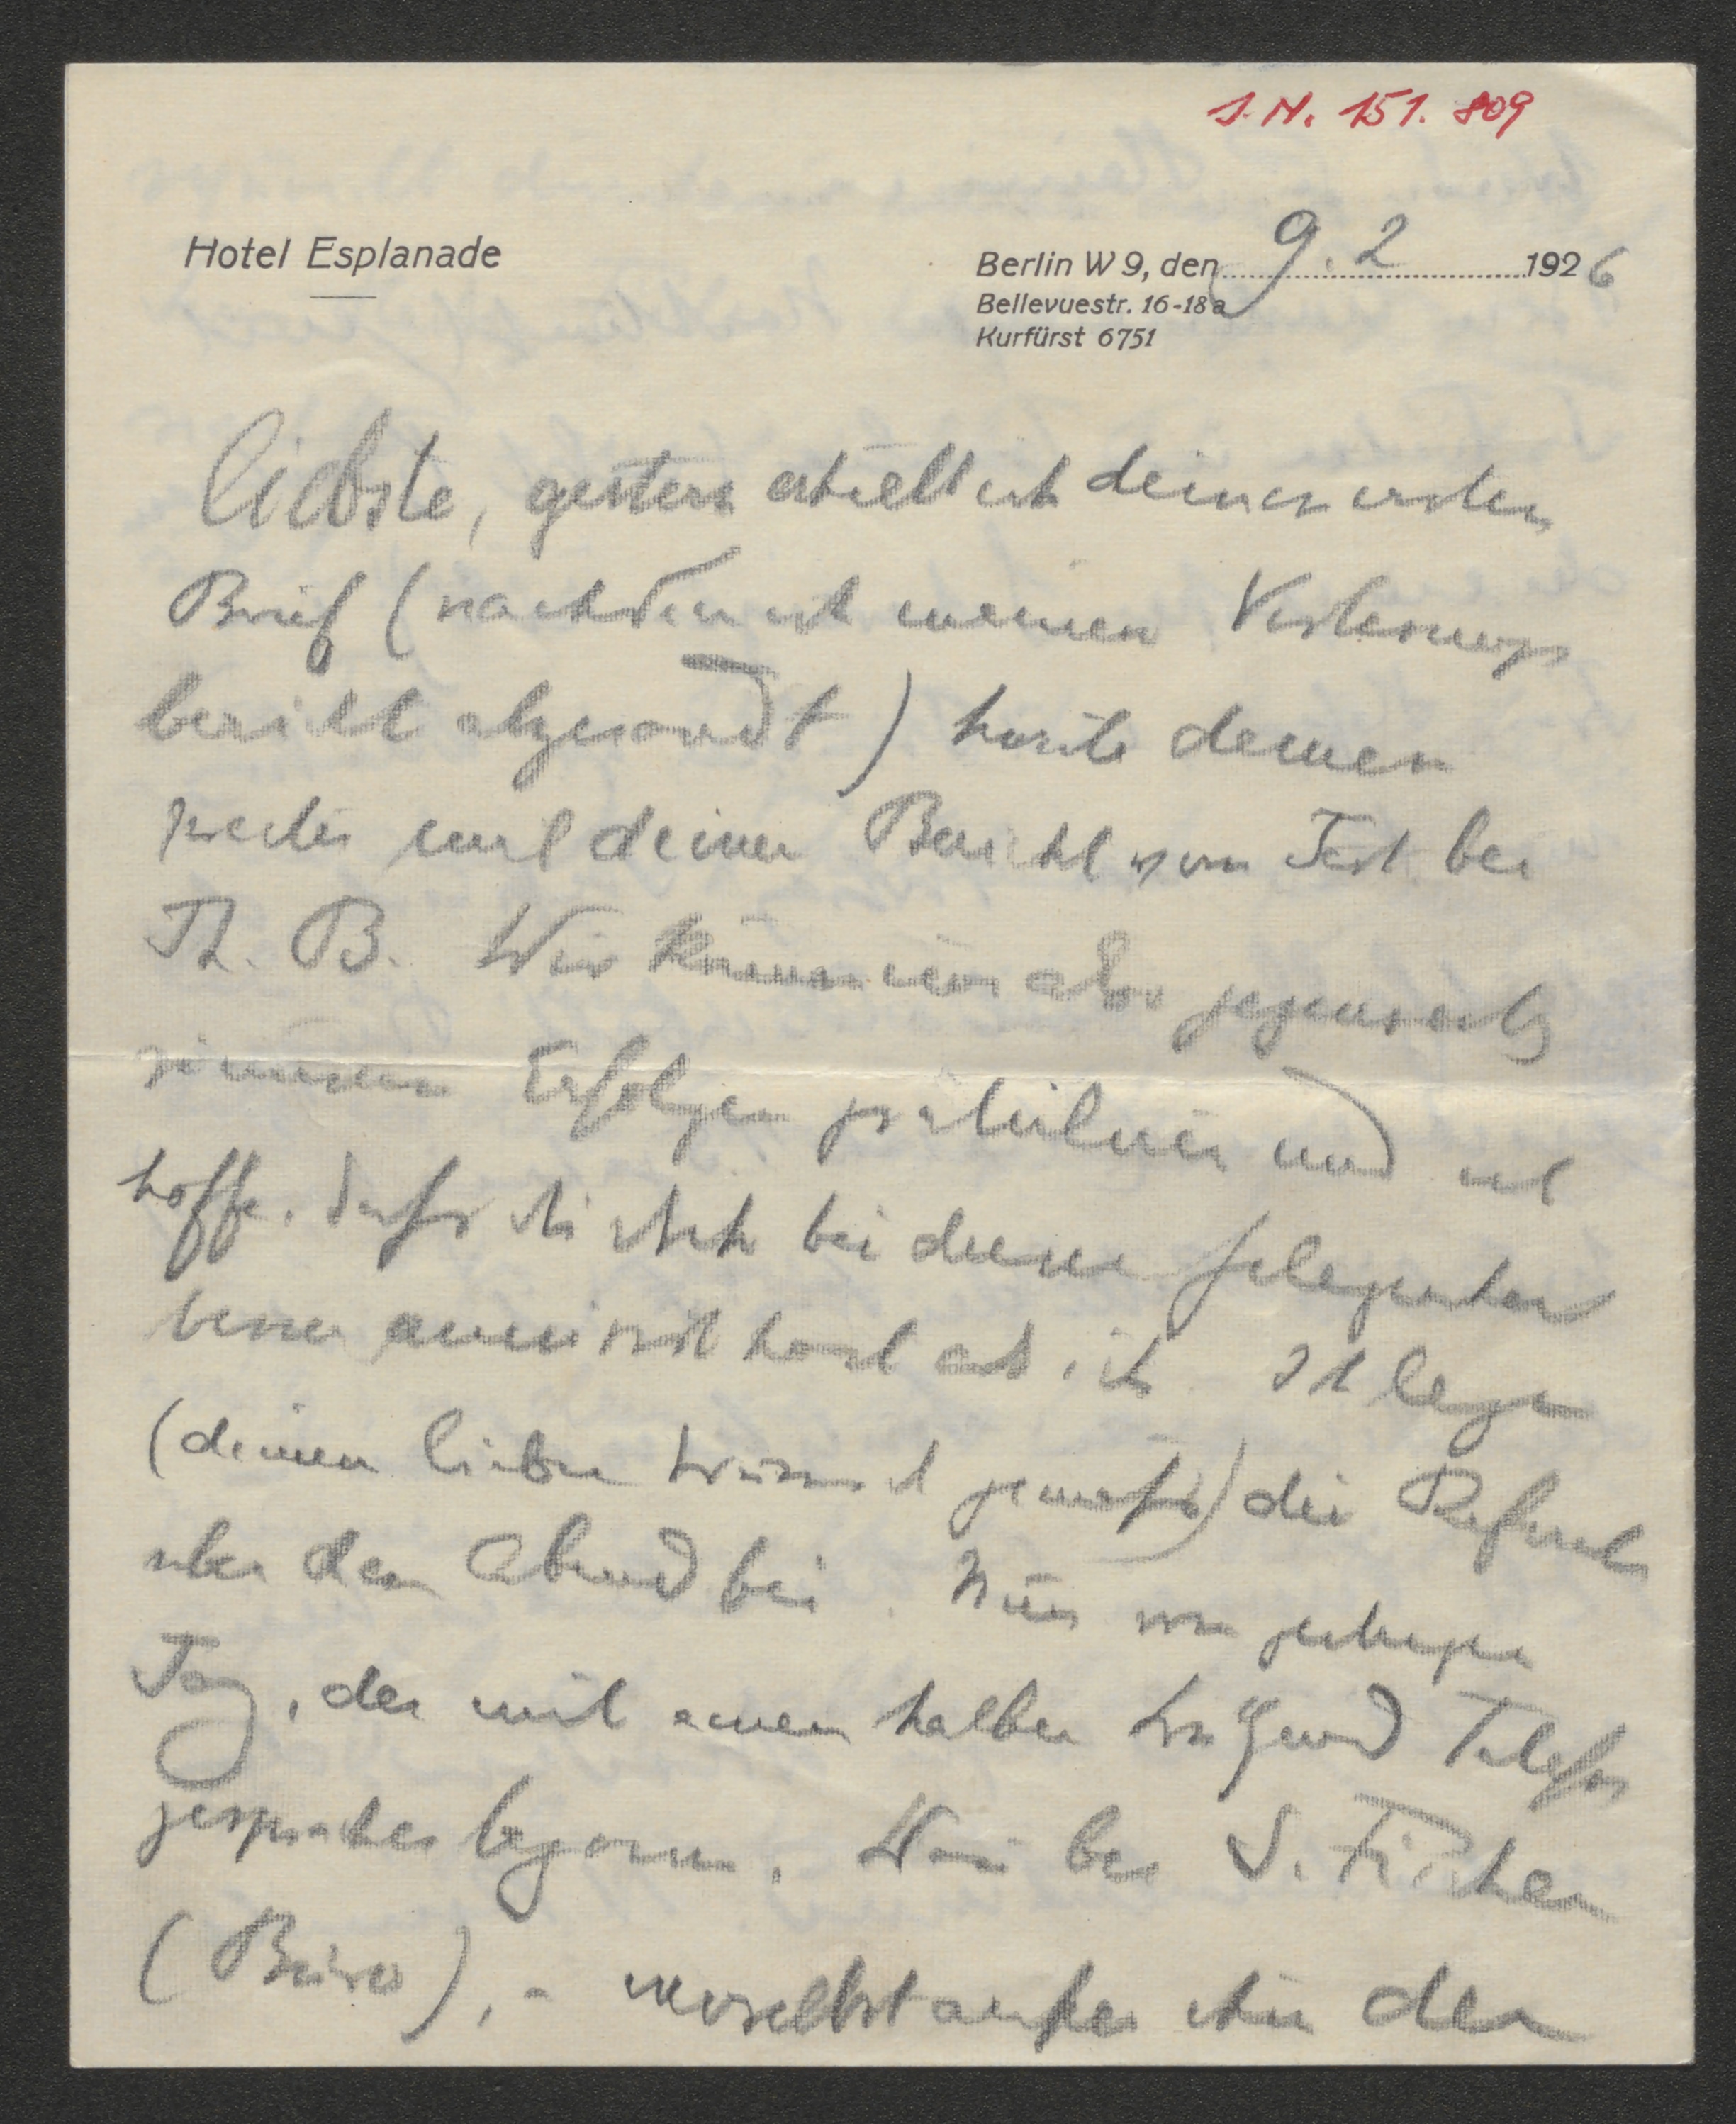 I. N. 151.809
Hotel Esplanade
Berlin W 9, den 9. 2 1926
Bellevuestr. 16-18a
Kurfürst 6751
Liebste, gestern erhielt ich deinen ersten
Brief (nachdem ich meinen Vorlesungs
bericht abgesandt) heute deinen
zweiten mit deinem Bericht vom Fest bei
Th. B. Wir können uns also gegenseitig
zu unsern Erfolgen gratuliren und ich
hoffe, dass du dich bei deiner Gelegenheit
besser amüsirt hast als ich. Ich lege
(deinem lieben Wunsch gemäß) die Referate
über den Abend bei. Nun vom gestrigen
Tag, der mit einem halben Dutzend Telefon
gesprächen begann. War bei S. Fischer
(Büro), - woselbst außer ihm der